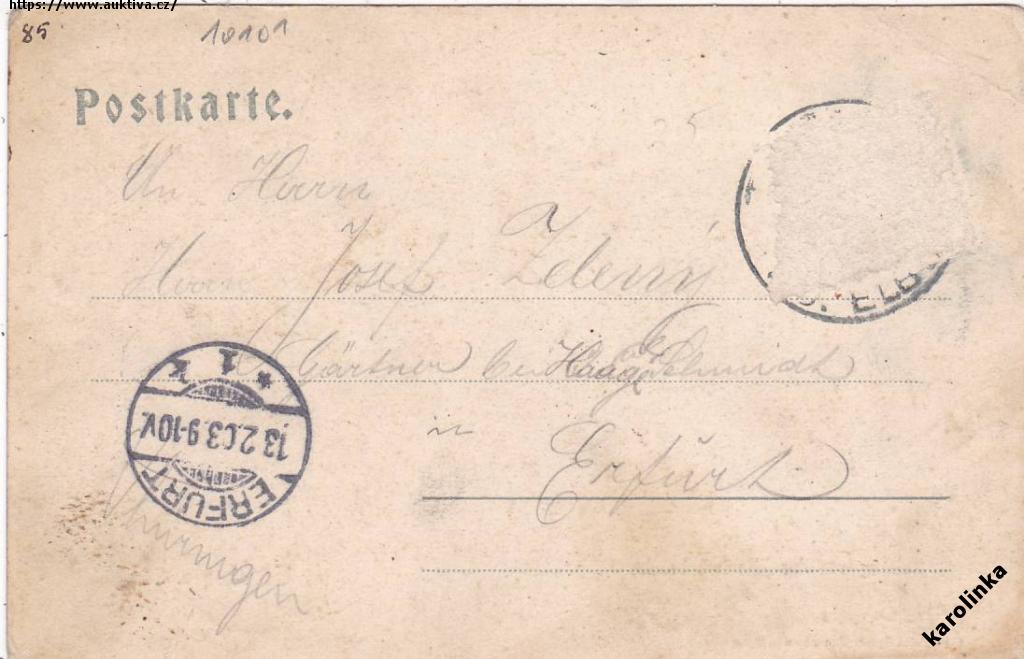 https://www.auktiva.cz/
85 10101
Postkarte.
25
An Herrn
Herrn Josef Zelený
Gärtner bei Haage Schmidt
in Erfurt
Thüringen
* 1 k
13.2.03.9-10V.
ERFURT
ELB
karolinka